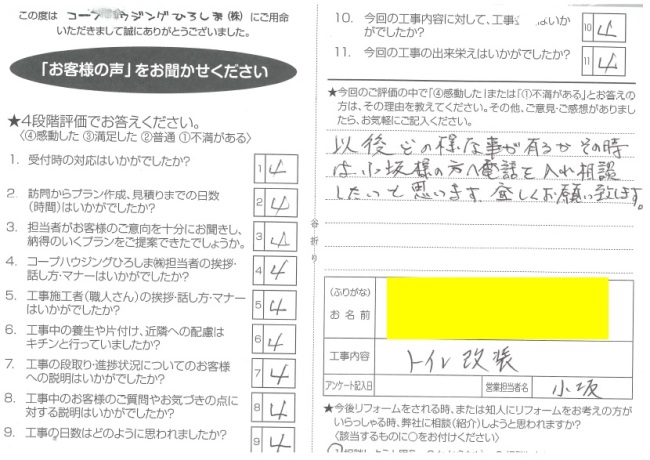 この度は コープハウジングひろしま(株) にご用命
いただきまして誠にありがとうございました。
「お客様の声」をお聞かせください
★4段階評価でお答えください。
〈④感動した ③満足した ②普通 ①不満がある〉
1. 受付時の対応はいかがでしたか? 1 4
2. 訪問からプラン作成、見積りまでの日数
(時間)はいかがでしたか? 2 4
3. 担当者がお客様のご意向を十分にお聞きし、
納得のいくプランをご提案できたでしょうか。 3 4
4. コープハウジングひろしま㈱担当者の挨拶・
話し方・マナーはいかがでしたか? 4 4
5. 工事施工者(職人さん)の挨拶・話し方・マナー
はいかがでしたか? 5 4
6. 工事中の養生や片付け、近隣への配慮は
キチンと行っていましたか? 6 4
7. 工事の段取り・進捗状況についてのお客様
への説明はいかがでしたか? 7 4
8. 工事中のお客様のご質問やお気づきの点に
対する説明はいかがでしたか? 8 4
9. 工事の日数はどのように思われましたか? 9 4
谷折り
10. 今回の工事内容に対して、工事 はいか
がでしたか? 10 4
11. 今回の工事の出来栄えはいかがでしたか? 11 4
★今回のご評価の中で「④感動した」または「①不満がある」とお答えの
方は、その理由を教えてください。その他、ご意見・ご感想がありまし
たら、お気軽にご記入ください。
以後どの様な事が有るかその時
は小坂様の方へ電話を入れ相談
したいと思います。宜しくお願い致します。
(ふりがな)
お名前
工事内容 トイレ改装
アンケート記入日 営業担当者名 小坂
★今後リフォームをされる時、または知人にリフォームをお考えの方が
いらっしゃる時、弊社に相談(紹介)しようと思われますか?
〈該当するものに○をお付けください〉